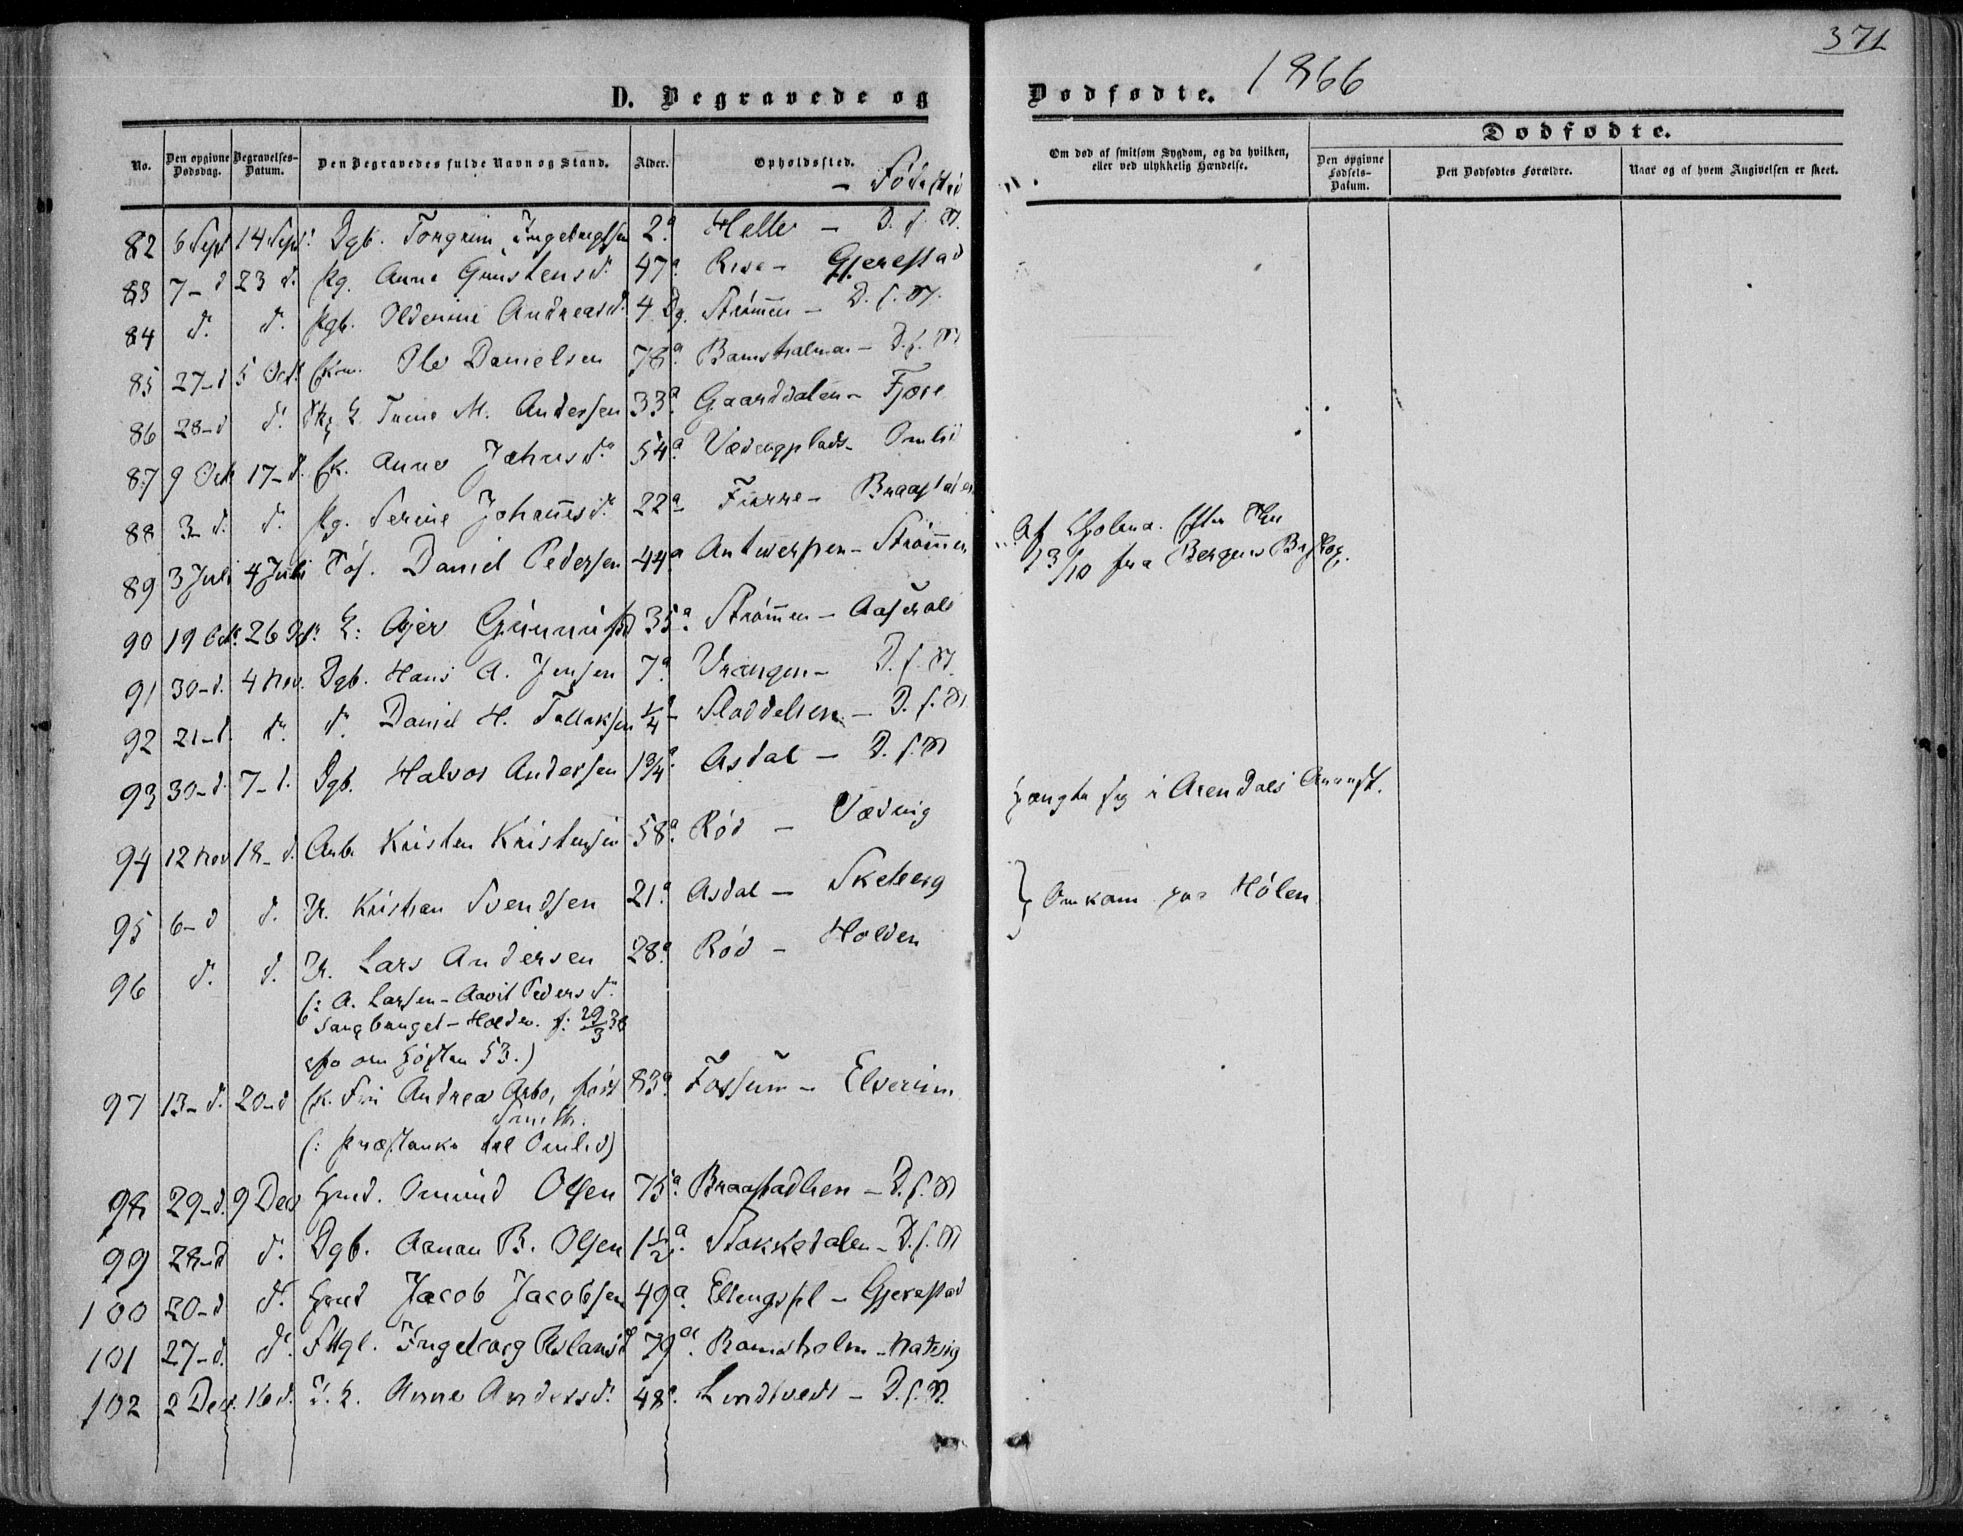 371
D. Begravede og Dødfødte. 1866
No. Den opgivne Dødsdag. Begravelses-Datum. Den Begravedes fulde Navn og Stand. Alder. Opholdssted. – Fødested
Om død af smitsom Sygdom, og da hvilken, eller ved ulykkelig Hændelse.
Dødfødte.
Den opgivne Fødsels-Datum. Den Dødfødtes Forældre. Naar og af hvem Angivelsen er skeet.
82 6 Sept 14 Sept. Dgb. Torgrim Ingebregtsen 2a. Helle – D. s. St.
83 7 – d 23 d. Pg. Anne Gunstensd. 47a. Rise – Gjerestad
84 d. d. Pgb. Olderine Andreasd. 4 Dg. Strømmen – D. s. St.
85 27 – d 5 Oct. Ekm. Ole Danielsen 78a. Bamsholmen – D. s. St
86 28 – d d. K. Trine M. Andersen 33a. Gaarddalen – Fjære
87 9 Oct 17 – d. Ek. Anne Jahnsd. 54a. Vædengplads – Omlid
88 3 – d. d. Pg. Serine Johannesd. 22a Furre – Braastad
89 3 Juli 4 Juli Søf. Daniel Pedersen 44a Antwerpen – Strømmen Af Cholera. Efter Skr
13/10 fra Bergens Biskop.
90 19 Oct. 26 d. K: Asjer Gunnulfsd 35a. Strømmen – Aaseral
91 30 – d. 4 Nov. Dgb. Hans A. Jensen 7a. Vrangen – D. s. St.
92 21 – d. d. d. Daniel H. Tallaksen 1/4 Sladdelien – D. s. St
93 30 – d. 7 – d. Dgb. Halvor Andersen 1 3/4a. Asdal – D. s. St
94 12 Nov 18 – d. Arb. Kristen Kristensen 58a. Rød – Vædrig Hængte sig i Arendals Arrest.
95 6 – d d. Kristian Svendsen 21a. Asdal – Skeberg
} Omkom paa Hølen
96 d. d. Lars Andersen 28a. Rød – Holden
(: A. Larsen – Aavit Pedersd.
Langbanget – Holden. f: 29/3 38
om Høsten 53.)
97 13 – d. 20 – d Ek. Fru Andrea Arbo, født 83a Fossum – Elverum
Smith.
(: Præstenke til Omlid)
98 29 – d. 9 Dec Hmd. Omund Olsen 75a. Braastadlien – D. s. St
99 28 – d d. Dgb. Aanon B. Olsen 1 1/2a. Stokkedalen – D. s. St
100 20 – d d. Hmd Jacob Jacobsen 49a. Elengspl – Gjerestad
101 27 – d. d. Ingeborg Aslaksd 79a. Bamsholm –
102 2 Dec. 16 d. Anne Andersd. 48a. Lindtvedt – D. s. St.